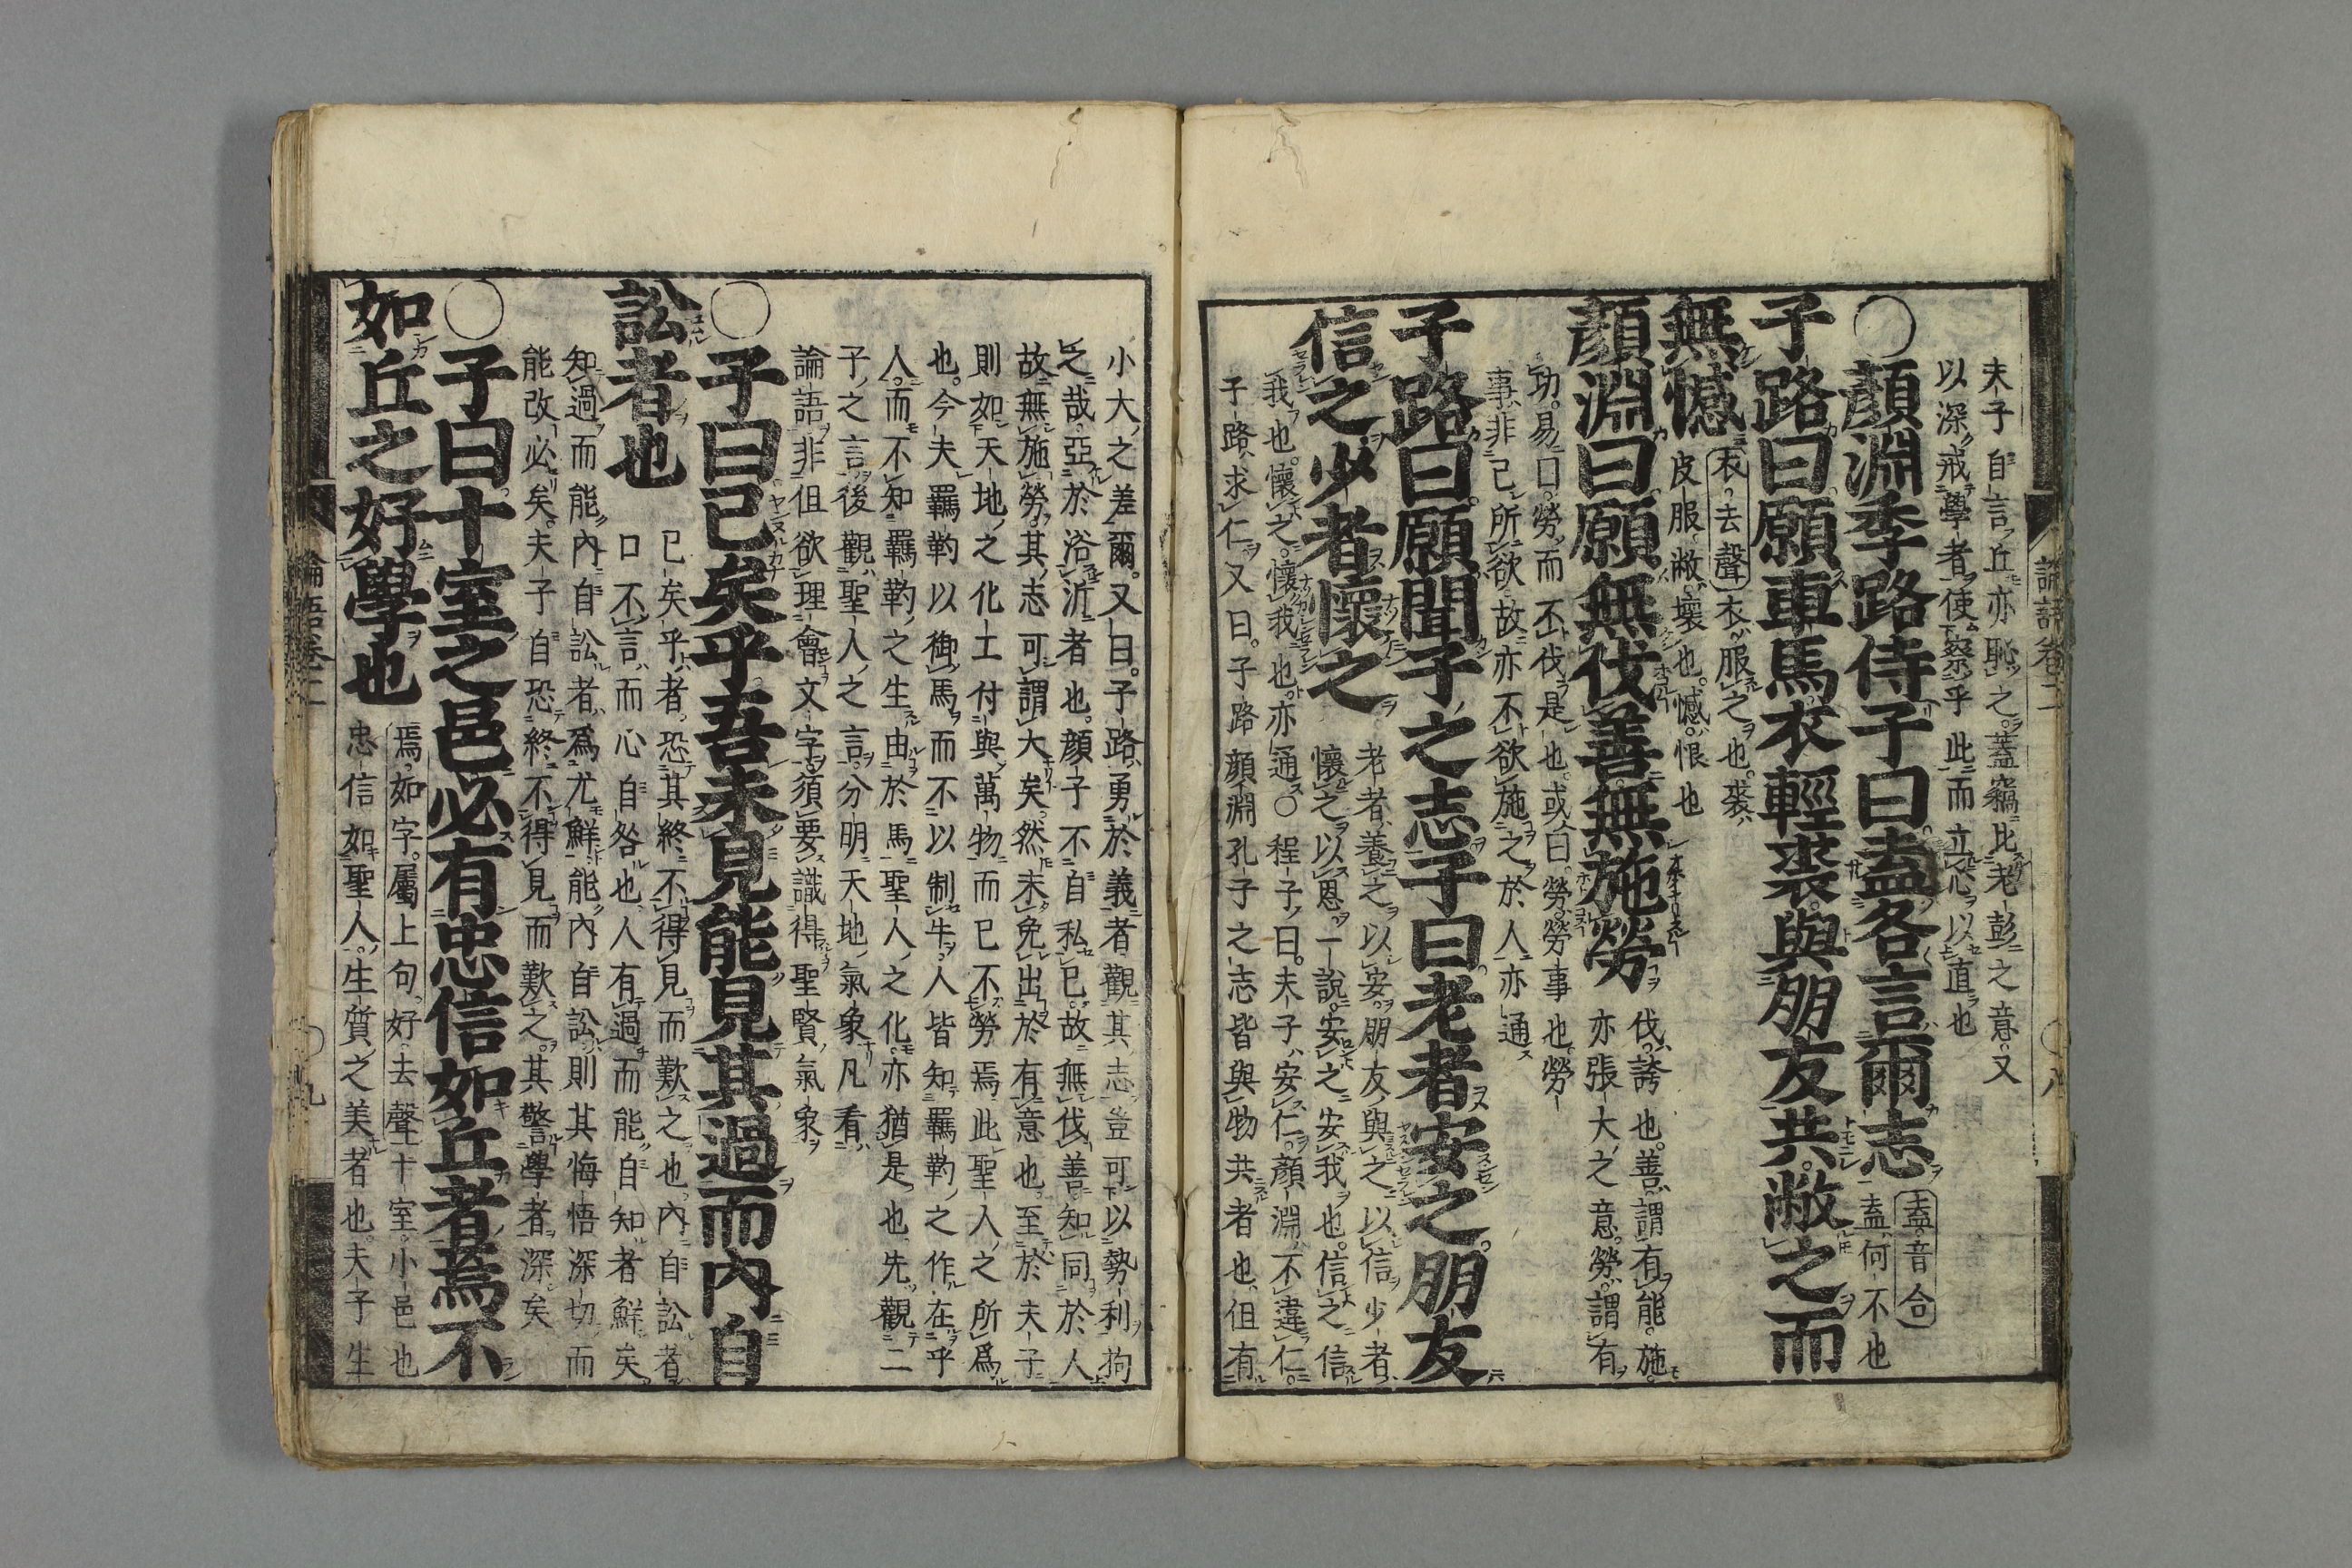 論語卷二
○八
夫子自言丘亦恥之蓋竊比老彭之意又
以深戒學者使察乎此而立心以直也
○顏淵季路侍子曰盍各言爾志
盍音合
盍何不也
子路曰願車馬衣輕裘與朋友共敝之而
無憾
衣去聲衣服之也裘
皮服敝壞也憾恨也
顏淵曰願無伐善無施勞
伐誇也善謂有能施
亦張大之意勞謂有
功易曰勞而不伐是也或曰勞勞事也勞
事非己所欲故亦不欲施之於人亦通
子路曰願聞子之志子曰老者安之朋友
信之少者懷之
老者養之以安朋友與之以信少者
懷之以恩一說安之安我也信之信
我也懷之懷我也亦通○程子曰夫子安仁顏淵不違仁
子路求仁又曰子路顏淵孔子之志皆與物共者也但有
小大之差爾又曰子路勇於義者觀其志豈可以勢利拘
之哉亞於浴沂者也顏子不自私己故無伐善知同於人
故無施勞其志可謂大矣然未免出於有意也至於夫子
則如天地之化工付與萬物而己不勞焉此聖人之所爲
也今夫羈靮以御馬而不以制牛人皆知羈靮之作在乎
人而不知羈靮之生由於馬聖人之化亦猶是也先觀二
子之言後觀聖人之言分明天地氣象凡看
論語非但欲理會文字須要識得聖賢氣象
○子曰已矣乎吾未見能見其過而內自
訟者也
已矣乎者恐其終不得見而歎之也內自訟者
口不言而心自咎也人有過而能自知者鮮矣
知過而能內自訟者爲尤鮮能內自訟則其悔悟深切而
能改必矣夫子自恐終不得見而歎之其警學者深矣
○子曰十室之邑必有忠信如丘者焉不
如丘之好學也
焉如字屬上句好去聲十室小邑也
忠信如聖人生質之美者也夫子生
論語卷二
○九